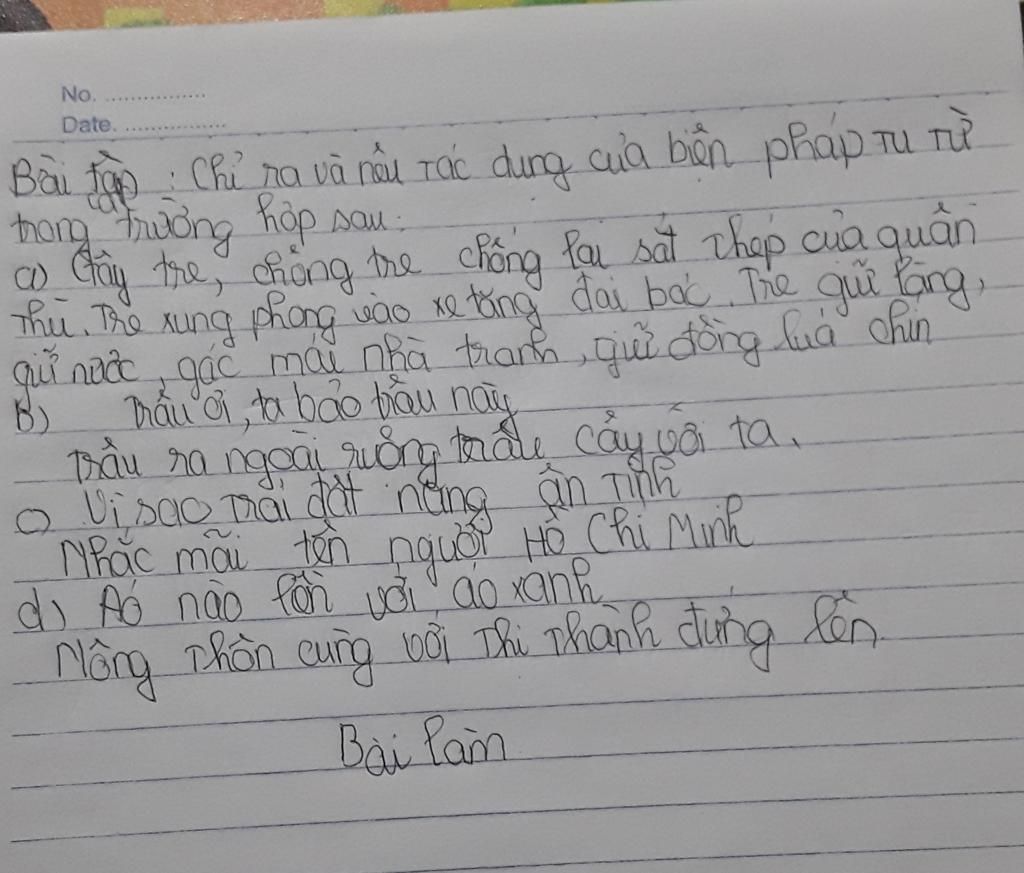 No. ................
Date. ................
Bài tập : Chỉ ra và nêu tác dụng của biện pháp tu từ
trong các trường hợp sau:
a) Gậy tre, chông tre chống lại sắt thép của quân
thù. Tre xung phong vào xe tăng đại bác. Tre giữ làng,
giữ nước, gác mái nhà tranh, giữ đồng lúa chín
B) Trâu ơi, ta bảo trâu này
Trâu ra ngoài ruộng trâu cầy với ta.
c) Vì sao trái đất nặng ân tình
Nhắc mãi tên người Hồ Chí Minh
d) Áo nâu liền với áo xanh
Nông thôn cùng với thị thành đứng lên.
Bài làm